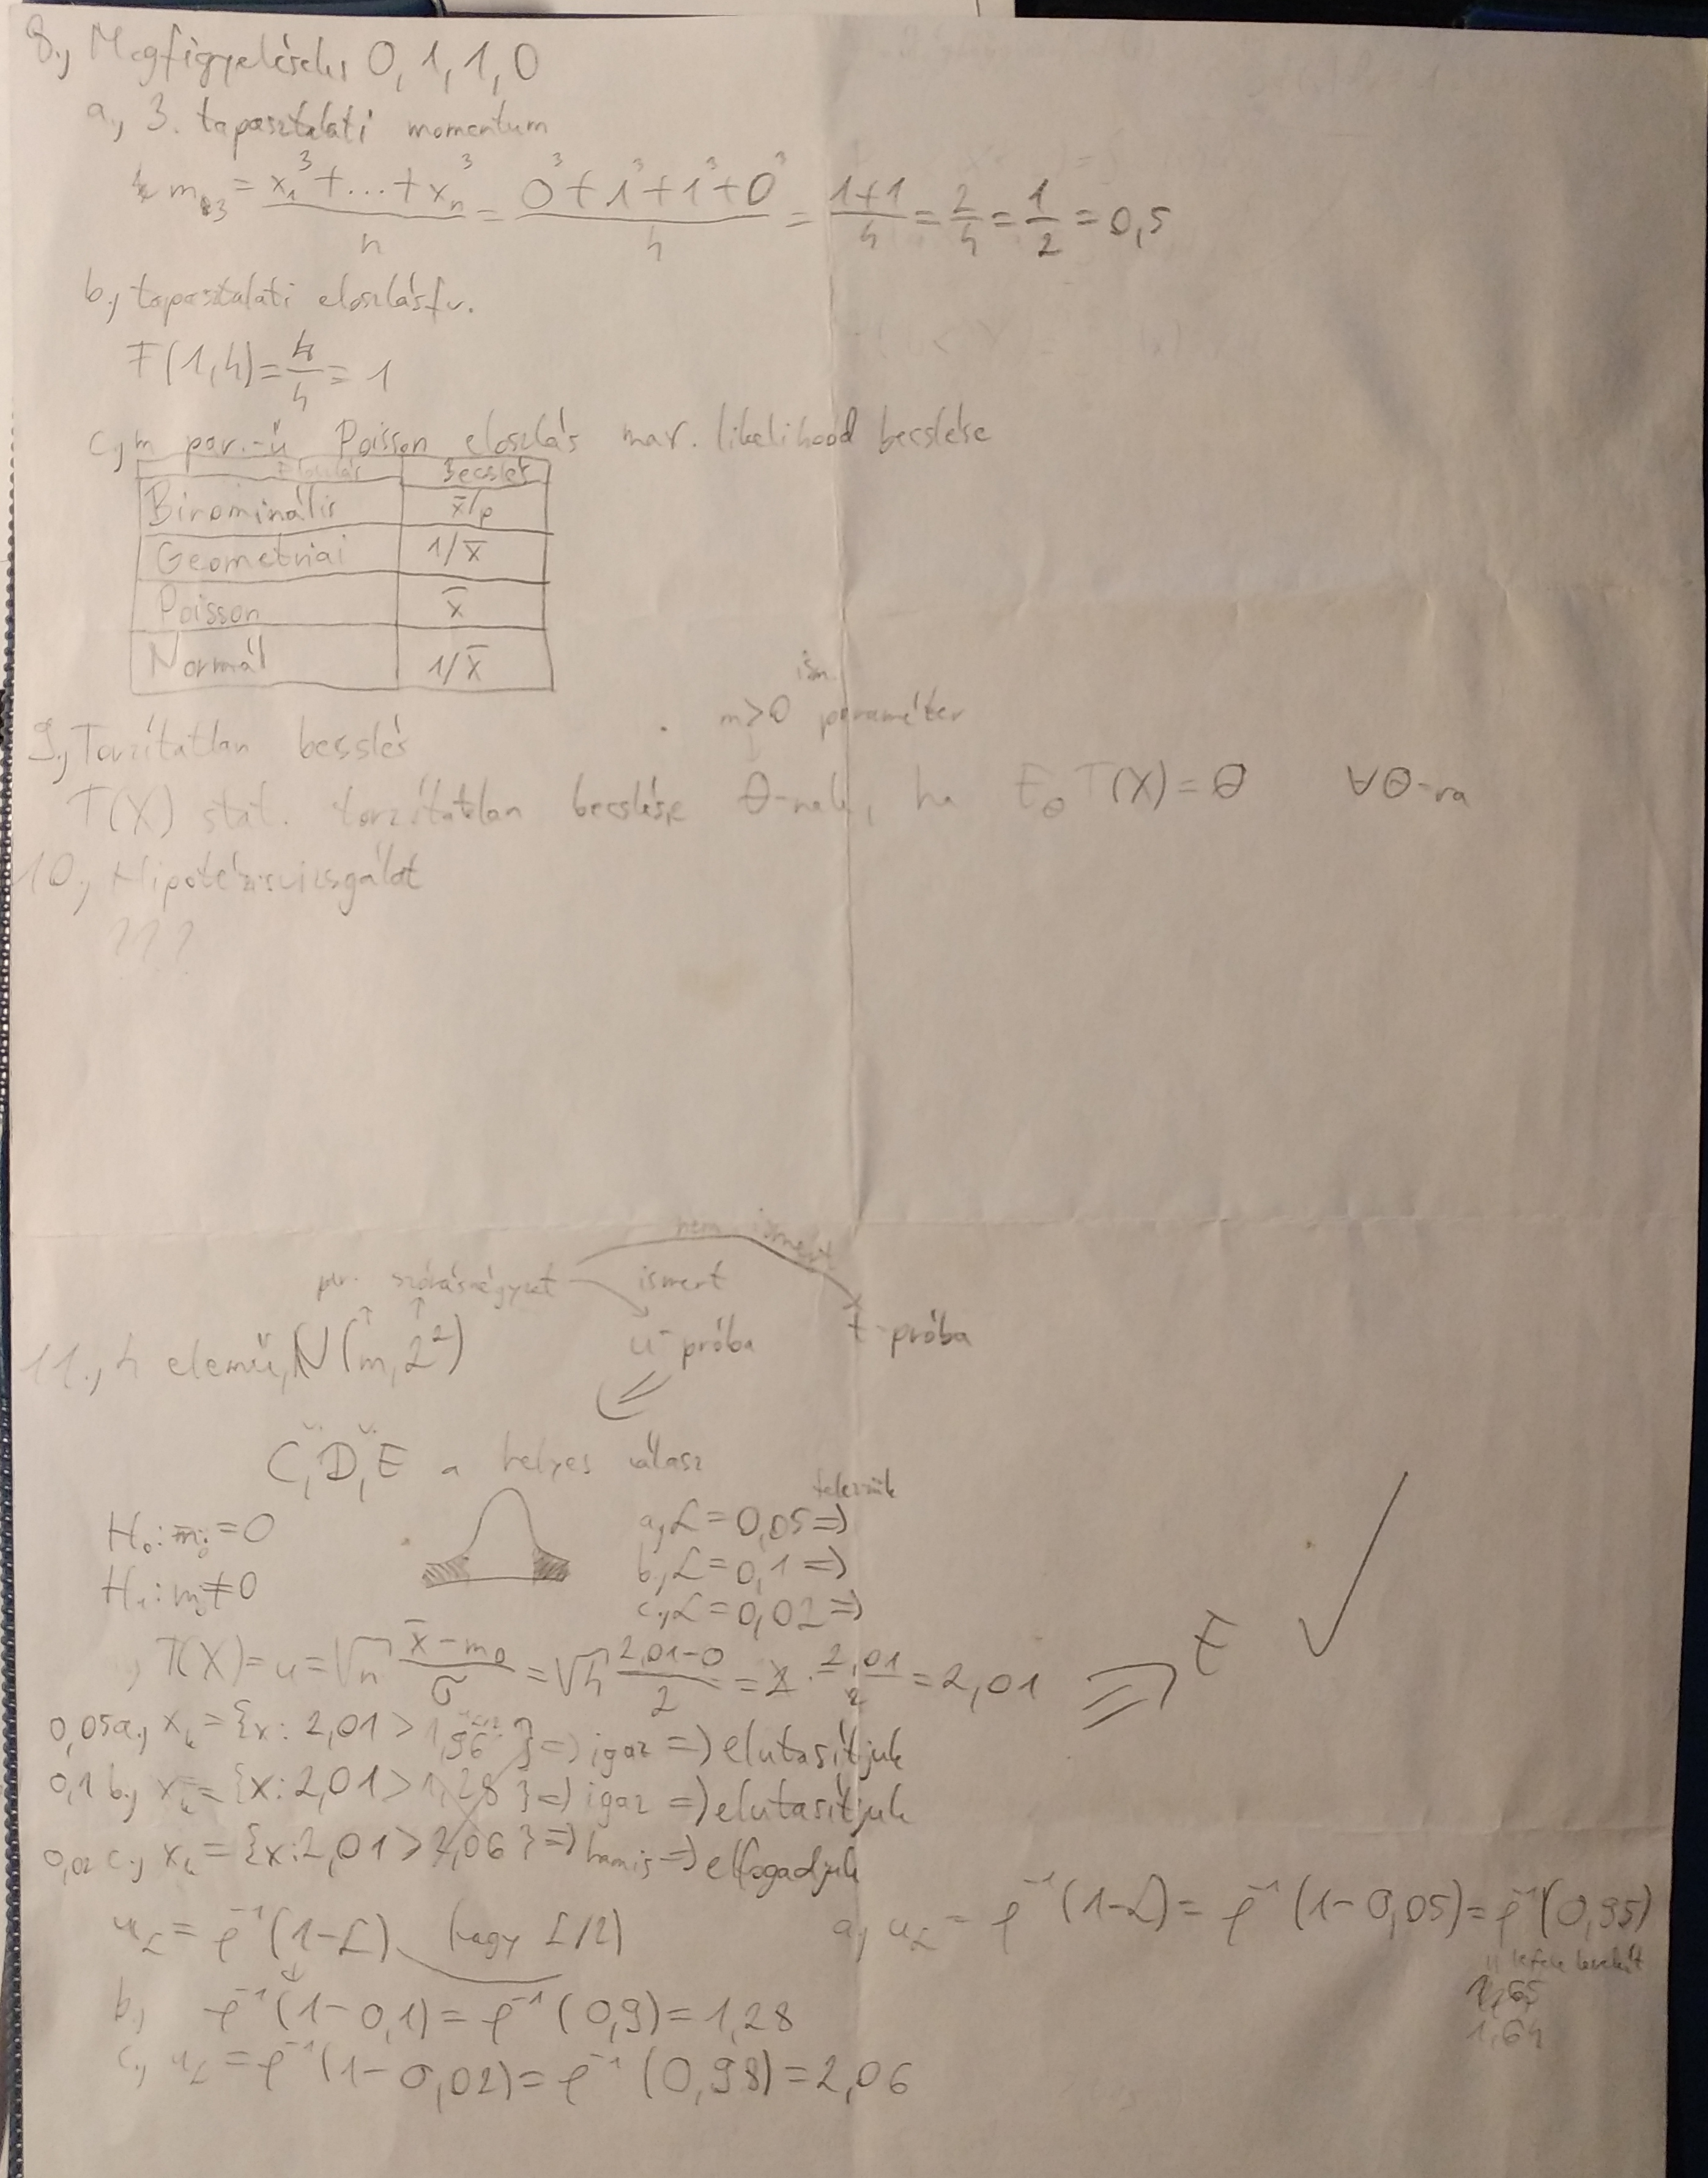 8., Megfigyelések 0, 1, 1, 0
a., 3. tapasztalati momentum
m₃ = (x₁³ + ... + xₙ³)/n = (0³ + 1³ + 1³ + 0³)/4 = (1+1)/4 = 2/4 = 1/2 = 0,5
b., tapasztalati eloszlásfv.
F(1,4) = 4/4 = 1
c., m par.-ű Poisson eloszlás max. likelihood becslése
Eloszlás Becslés
Birominális x̄/p
Geometriai 1/x̄
Poisson x̄
Normál 1/x̄
ism.
m>0 paraméter
9., Torzítatlan besslés
T(X) stat. torzítatlan becslése θ-nak, ha E_θ T(X) = θ ∀θ-ra
10., Hipotézisvizsgálat
???
nem ismert
par. szórásnégyzet ismert
u-próba t-próba
11., 4 elemű, N(m, 2²)
C, D, E a helyes válasz
H₀: m₀ = 0
H₁: m₀ ≠ 0
a., α = 0,05 ⇒
b., α = 0,1 ⇒
c., α = 0,02 ⇒
T(X) = u = √n (x̄ - m₀)/σ = √4 (2,01 - 0)/2 = 2 · 2,01/2 = 2,01 ⇒ E ✓
0,05 a., xₖ = {x: 2,01 > 1,96} ⇒ igaz ⇒ elutasítjuk
0,1 b., xₖ = {x: 2,01 > 1,28} ⇒ igaz ⇒ elutasítjuk
0,02 c., xₖ = {x: 2,01 > 2,06} ⇒ hamis ⇒ elfogadjuk
u_α = φ⁻¹(1-α) (vagy α/2)
a., u_α = φ⁻¹(1-α) = φ⁻¹(1-0,05) = φ⁻¹(0,95)
1,65
1,64
b., φ⁻¹(1-0,1) = φ⁻¹(0,9) = 1,28
c., u_α = φ⁻¹(1-0,02) = φ⁻¹(0,98) = 2,06